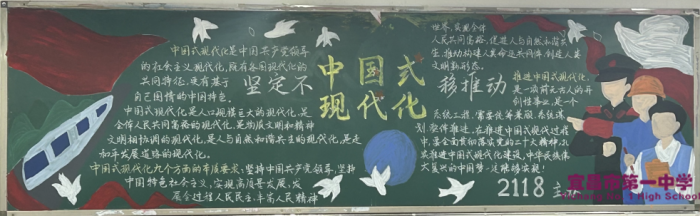 中国式现代化是中国共产党领导
的社会主义现代化,既有各国现代化的
共同特征,更有基于
自己国情的中国特色。
坚定不
中国式现代化是人口规模巨大的现代化,是
全体人民共同富裕的现代化,是物质文明和精神
文明相协调的现代化,是人与自然和谐共生的现代化,是走
和平发展道路的现代化。
中国式现代化九个方面的本质要求:坚持中国共产党领导,坚持
中国特色社会主义,实现高质量发展,发
展全过程人民民主,丰富人民精神
中国式
现代化
世界,实现全体
人民共同富裕,促进人与自然和谐共
生,推动构建人类命运共同体,创造人类
文明新形态。
移推动
推进中国式现代化,
是一项前无古人的开
创性事业,是一个
系统工程,需要统筹兼顾、系统谋
划、整体推进。在推进中国式现代化过程
中,要全面贯彻落实党的二十大精神,扎
实推进中国式现代化建设,中华民族伟
大复兴的中国梦一定能够实现!
2118
宜昌市第一中学
Yichang No.1 High School